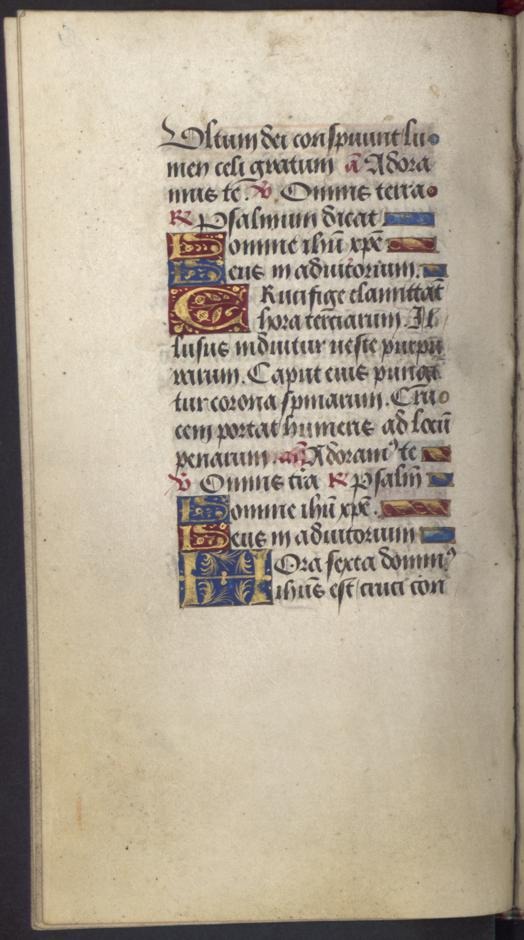 Vltum dei conspuunt lu
men celi gratum a Adora
mus te. V Omnis terra
R Psalmum dicat
Domine ihu xpe
Deus in adiutorium.
CRucifige clamitat
hora terciarum. Il
lusus induitur ueste purpu
rarum. Caput eius punga
tur corona spinarum. Cru
cem portat humeris ad locu
penarum. an Adoram⁹ te
V Omnis tra R Psalm
Domine ihu xpe.
Deus in adiutorium
HOra sexta domin⁹
ihus est cruci con